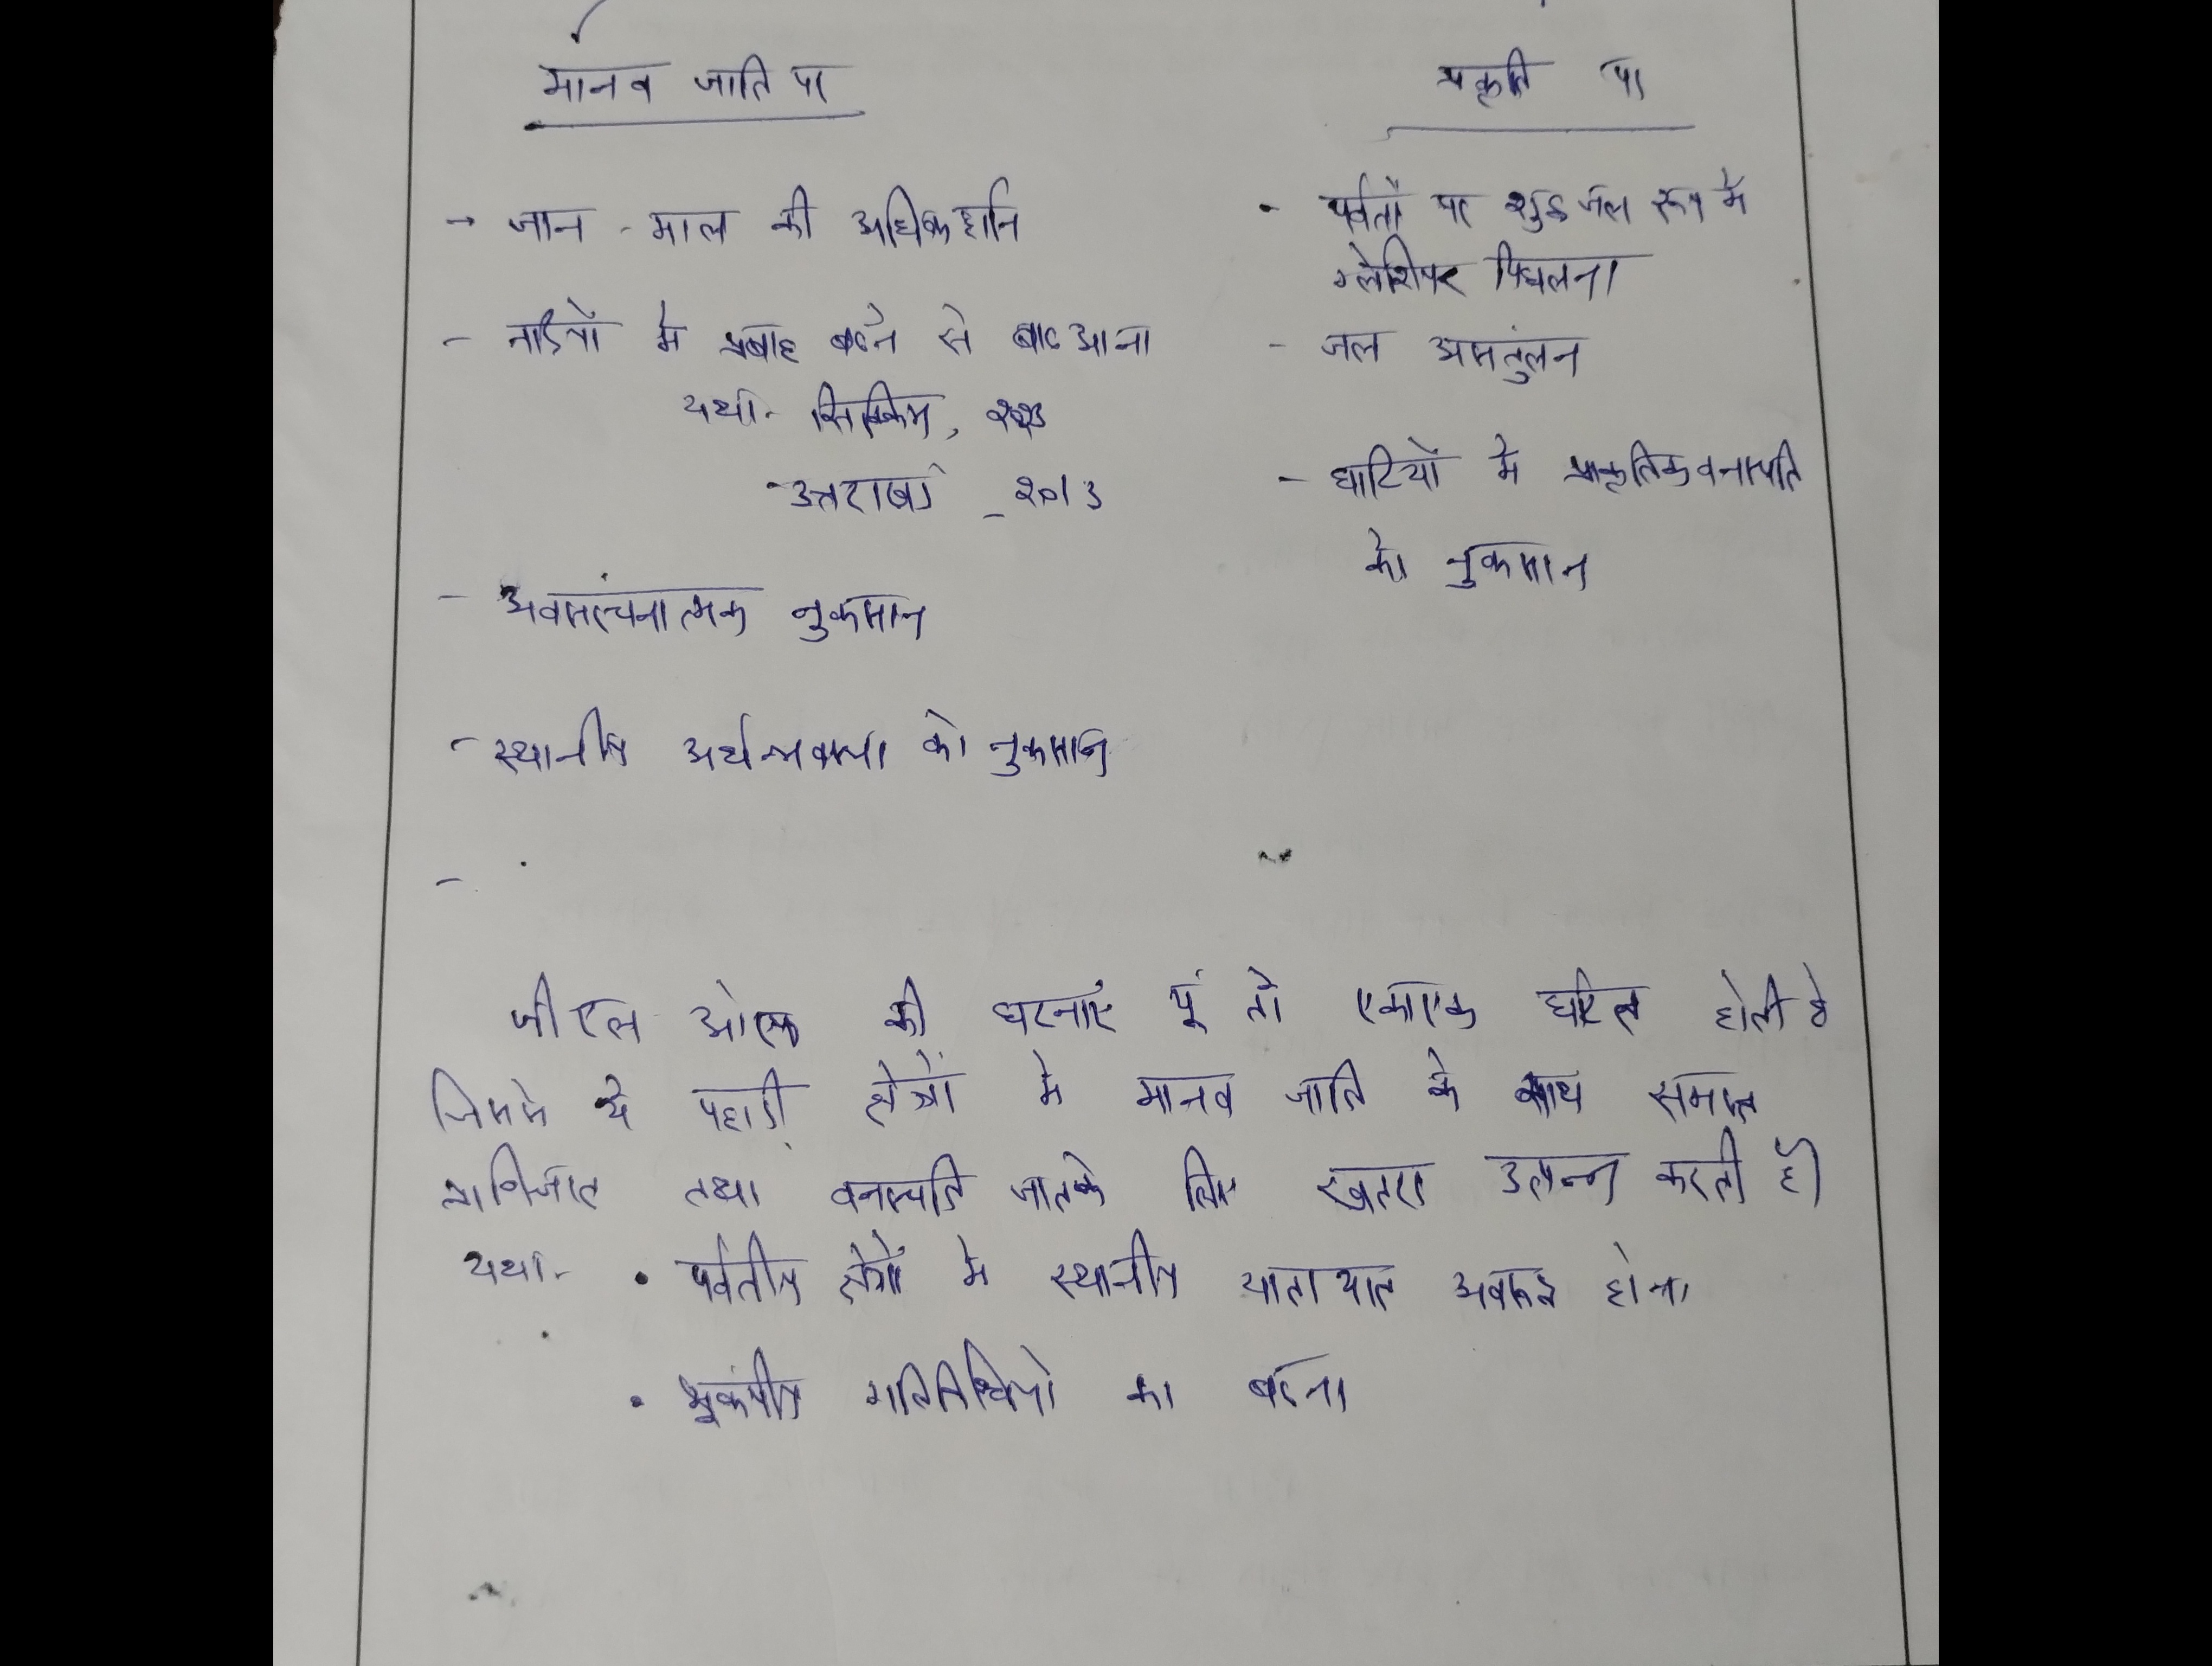 मानव जाति पर
→ जान - माल की अधिक हानि
- नदियों मे प्रवाह बढने से बाढ आना
यथा- सिक्किम, २०२३
- उत्तराखंड - २०13
- अवसरंचनात्मक नुकसान
- स्थानीय अर्थव्यवस्था को नुकसान
-
प्रकृति पर
• पर्वतों पर शुद्ध जल रूप में
ग्लेशियर पिघलना
- जल असंतुलन
- घाटियों मे प्राकृतिक वनस्पति
को नुकसान
जीएल ओएफ की घटनाएं यूं तो एकाएक घटित होती है
जिसमे ये पहाडी़ क्षेत्रों मे मानव जाति के साथ समस्त
तथा वनस्पति जात के लिए खतरा उत्पन्न करती है।
यथा- • पर्वतीय क्षेत्रों मे स्थानीय यातायात अवरूद्ध होना
• भूकंपीय गतिविधियो का बढना